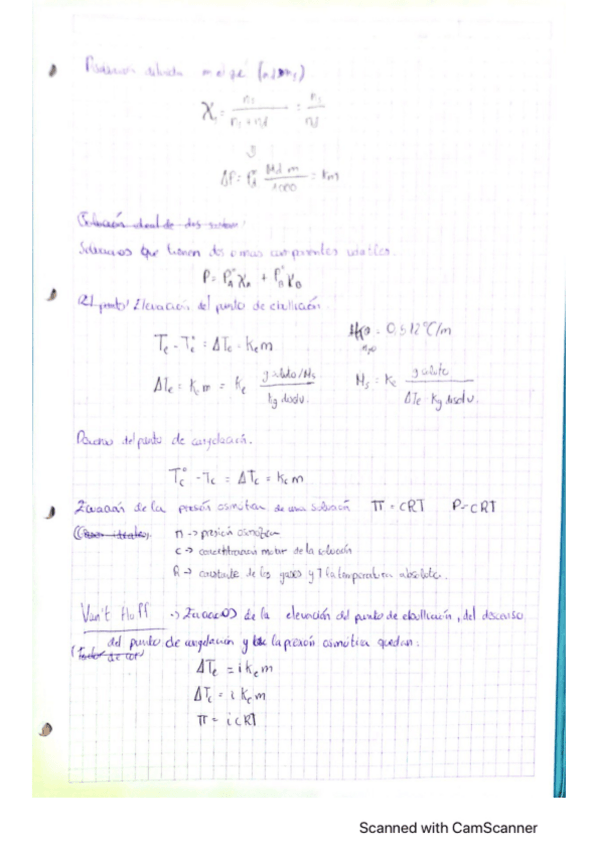 Disolución diluida (nd>>n₁)
χ₁ = n₁ / (n₁ + nd) = n₁ / nd
y
ΔP = P°d Md m / 1000 = km
Solución ideal de dos
Soluciones que tienen dos o mas componentes volátiles.
P = P°A χA + P°B χB
Elevación del punto de ebullición
Te - Te° = ΔTe = Ke m = 0,512 °C/m
H₂O
ΔTe = Ke m = Ke (g soluto/Ms) / (kg disolv.) Ms = Ke (g soluto) / (ΔTe · Kg disolv.)
Descenso del punto de congelación.
Tc° - Tc = ΔTc = Kc m
Ecuación de la presión osmótica de una solución π = cRT P = cRT
(Gases ideales) π -> presión osmótica
c -> concentración molar de la solución
R -> constante de los gases y T la temperatura absoluta.
Van't Hoff -> Ecuaciones de la elevación del punto de ebullición, del descenso
del punto de congelación y de la presión osmótica quedan:
ΔTe = i ke m
ΔTc = i Kc m
π = i cRT
Scanned with CamScanner